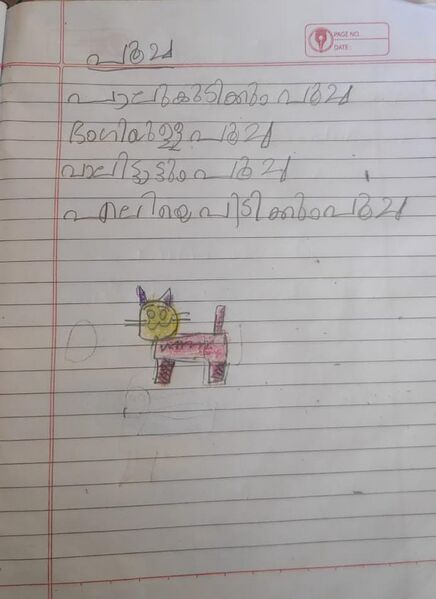 PAGE NO.
DATE:
പൂച്ച
പാലുകുടിക്കും പൂച്ച
ഭംഗിയുള്ള പൂച്ച
വാലിട്ടാട്ടും പൂച്ച
എലിയെ പിടിക്കും പൂച്ച